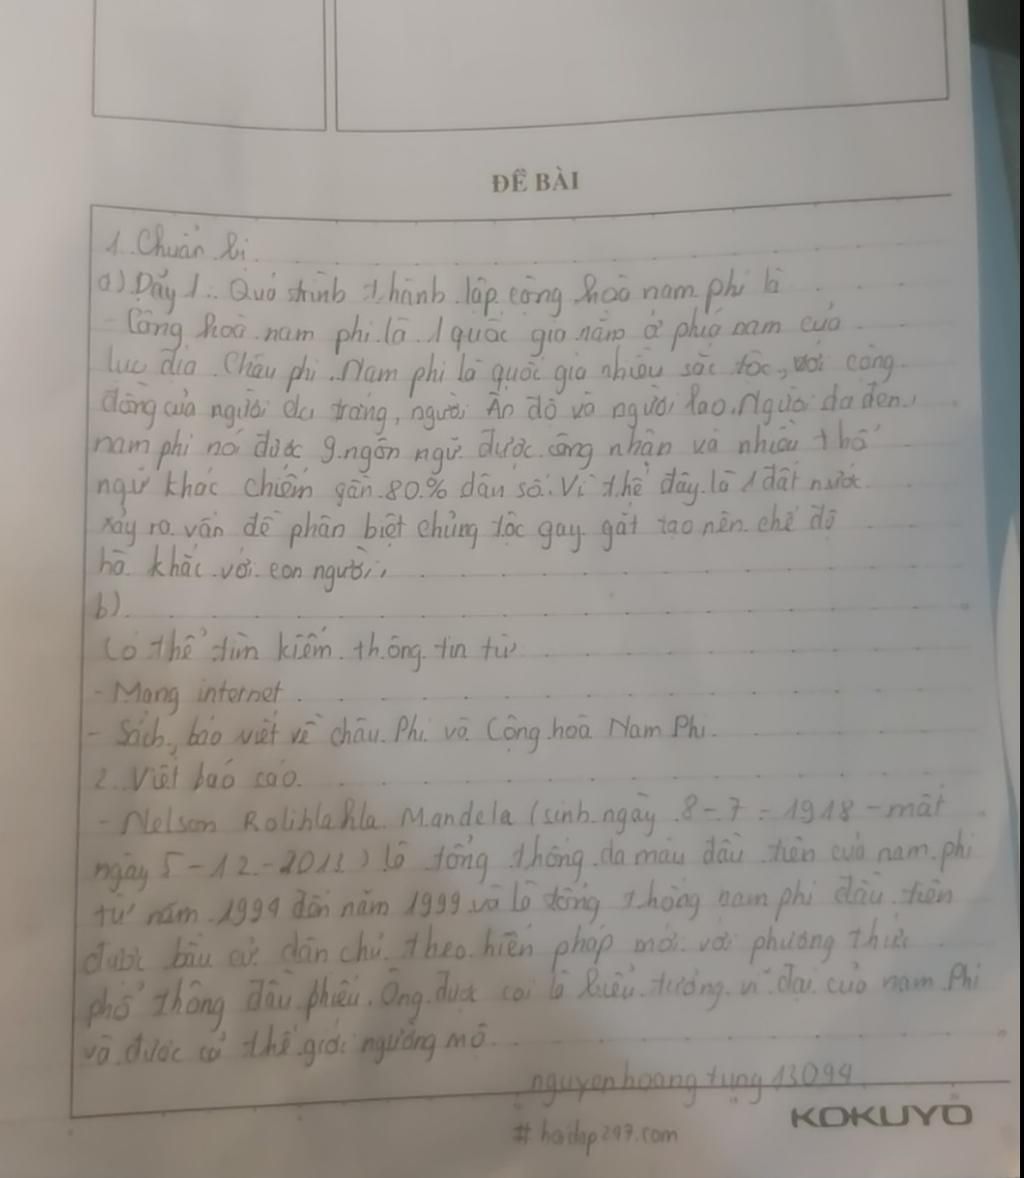 ĐỀ BÀI
1. Chuẩn bị
a) Dẫy 1: Quá trình thành lập cộng hoà nam phi là
- Cộng hoà nam phi là 1 quốc gia nằm ở phiá nam của
lục địa Châu phi. Nam phi là quốc gia nhiều sắc tộc, với cộng
đồng của người da trắng, người Ấn độ và người lao. Người da đen
nam phi nói được 9 ngôn ngữ được công nhận và nhiều thổ
ngữ khác chiếm gần 80% dân số. Vì thế đây là 1 đất nước
xảy ra vấn đề phân biệt chủng tộc gay gắt tạo nên chế độ
hà khắc với con người,
b)
Có thể tìm kiếm thông tin từ
- Mạng internet
- Sách, báo viết về châu Phi và Cộng hoà Nam Phi.
2. Viết baó cáo.
- Nelson Rolihlahla Mandela (sinh ngày 8-7-1918 - mất
ngày 5-12-2013) là tổng thống da màu đầu tiên cuả nam phi
từ năm 1994 đến năm 1999 và là tổng thống nam phi đầu tiên
được bầu cử dân chủ theo hiến pháp mới với phương thức
phổ thông đầu phiếu. Ông được coi là biểu tượng vĩ đại cuả nam Phi
và được cả thế giới ngưỡng mộ.
nguyenhoang tung 13094
# hoidap247.com
KOKUYO